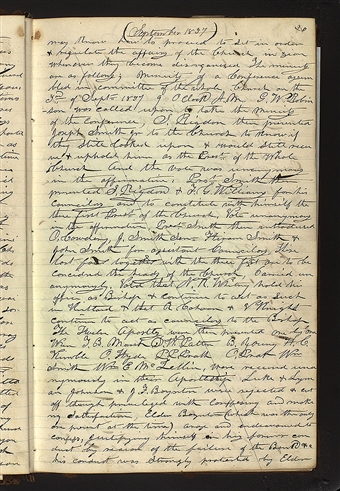 (September 1837)
may know how to proceed to set in order
& regulate the affairs of the Church in Zion
whenever they become disorganized The minutes
are as follows; Minutes of a Conference assem
bled in committee of the whole Church on the
3rd of Sept. 1837 9 O'Clock A.M. G. W. Robin
son was called upon to take the minutes
of the conference S. Rigdon then presented
Joseph Smith jr to the Church to know if
they still looked upon & would still recei
ve & uphold him as the Prest of the whole
Church And the vote was unanimous
in the affirmative: Prest Smith
presented S. Rigdon & F. G. Williams for his
councilors and to constitute with himself the
three first Prest of the Church. Vote unanimous
in the affirmative Prest Smith then introduced
O. Cowdery, J. Smith Sen. Hiram Smith &
John Smith for assistant Councilors. These
last four together with the three first are to be
concidered the heads of the Church, Carried un
anymously. Voted that N. K. Whitney hold his
office as Bishop & continue to act as such
in Kirtland & that R. Cahoon & V. Knight
continue to act as councilors to the Bishop
The Twelve Apostles were then presented one by one
When T. B. Marsh D. W. Patten B. Young H. C.
Kimble O. Hyde P. P. Pratt O. Pratt Wm
Smith Wm E. McLellin, were received una
nymously in their Apostleship Luke & Lym
an Johnson & J. F. Boynton were rejected & cut
off though privileged with confessing and makei
ng satisfaction, Elder Boynton (which was the only
one present at the time) arose and endeavoured to
confess, justifying himself in his former con
duct by reason of the failure of the Bank &c
his conduct was strongly protested by Elder